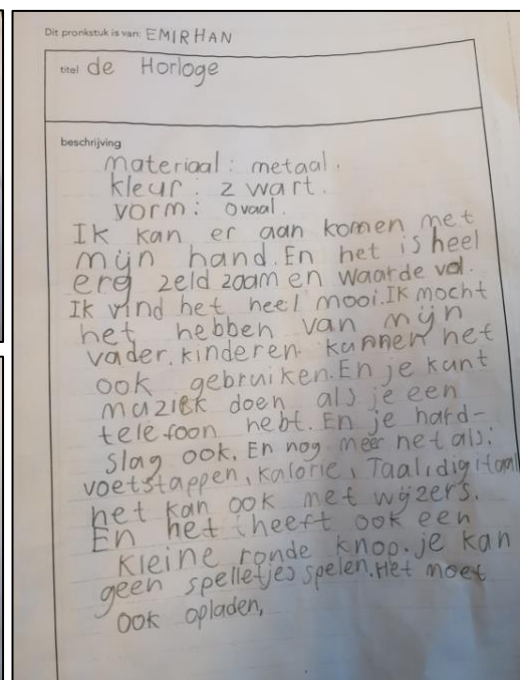 Dit pronkstuk is van: EMIRHAN
titel de Horloge
beschrijving
materiaal: metaal.
kleur: zwart.
vorm: ovaal.
Ik kan er aan komen met
mijn hand. En het is heel
erg zeld zaam en waarde vol.
Ik vind het heel mooi. Ik mocht
het hebben van mijn
vader. kinderen kunnen het
ook gebruiken. En je kunt
muziek doen als je een
telefoon hebt. En je hard-
slag ook. En nog meer net als:
voetstappen, kalorie, Taal, digitaal
het kan ook met wijzers.
En het heeft ook een
kleine ronde knop. je kan
geen spelletjes spelen. Het moet
ook opladen,